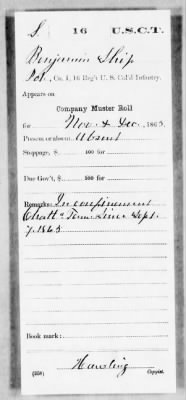 S. 16 U.S.C.T.
Benjamin Ship
Co. I, 16 Reg't U. S. Col'd Infantry.
Appears on
Company Muster Roll
for Nov. & Dec., 1863.
Present or absent Absent
Stoppage, $ 100 for
Due Gov't, $ 100 for
Remarks: In confinement
Chatta Tenn. Since Sept.
7. 1863
Book mark:
(358) Copyist.